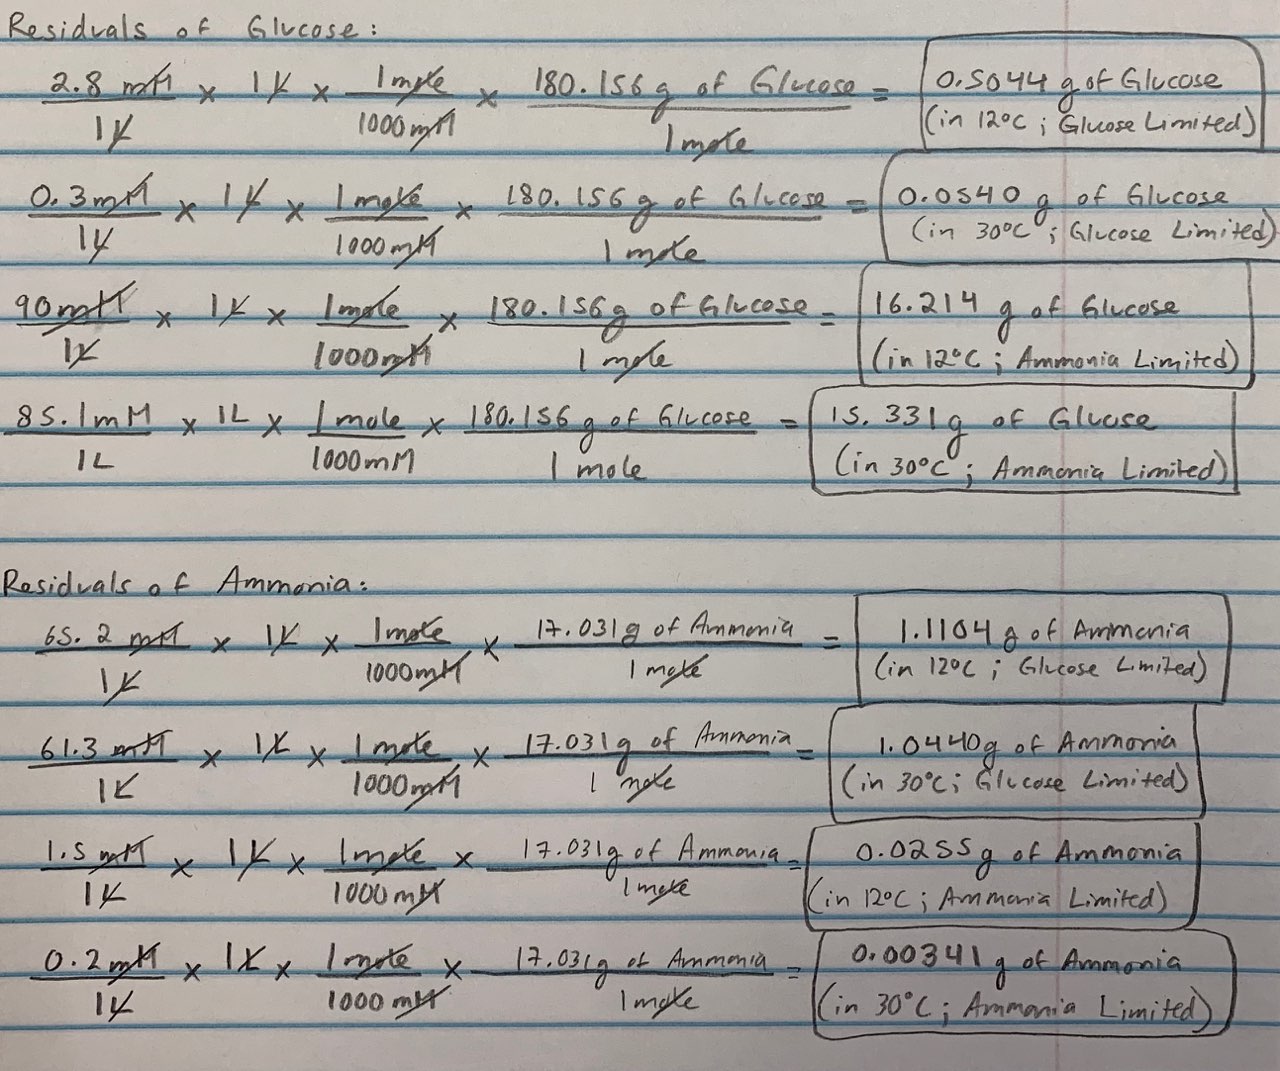 Residuals of Glucose:
2.8 mM / 1L × 1L × 1mole / 1000mM × 180.156g of Glucose / 1mole = 0.5044 g of Glucose
(in 12°C ; Glucose Limited)
0.3mM / 1L × 1L × 1mole / 1000mM × 180.156 g of Glucose / 1 mole = 0.0540 g of Glucose
(in 30°C ; Glucose Limited)
90mM / 1L × 1L × 1mole / 1000mM × 180.156g of Glucose / 1 mole = 16.214 g of Glucose
(in 12°C ; Ammonia Limited)
85.1mM / 1L × 1L × 1mole / 1000mM × 180.156 g of Glucose / 1 mole = 15.331g of Glucose
(in 30°C ; Ammonia Limited)
Residuals of Ammonia:
65.2 mM / 1L × 1L × 1mole / 1000mM × 17.031g of Ammonia / 1 mole = 1.1104 g of Ammonia
(in 12°C ; Glucose Limited)
61.3 mM / 1L × 1L × 1mole / 1000mM × 17.031g of Ammonia / 1 mole = 1.0440g of Ammonia
(in 30°C ; Glucose Limited)
1.5 mM / 1L × 1L × 1mole / 1000mM × 17.031g of Ammonia / 1mole = 0.0255g of Ammonia
(in 12°C ; Ammonia Limited)
0.2mM / 1L × 1L × 1mole / 1000 mM × 17.031g of Ammonia / 1mole = 0.00341 g of Ammonia
(in 30°C ; Ammonia Limited)